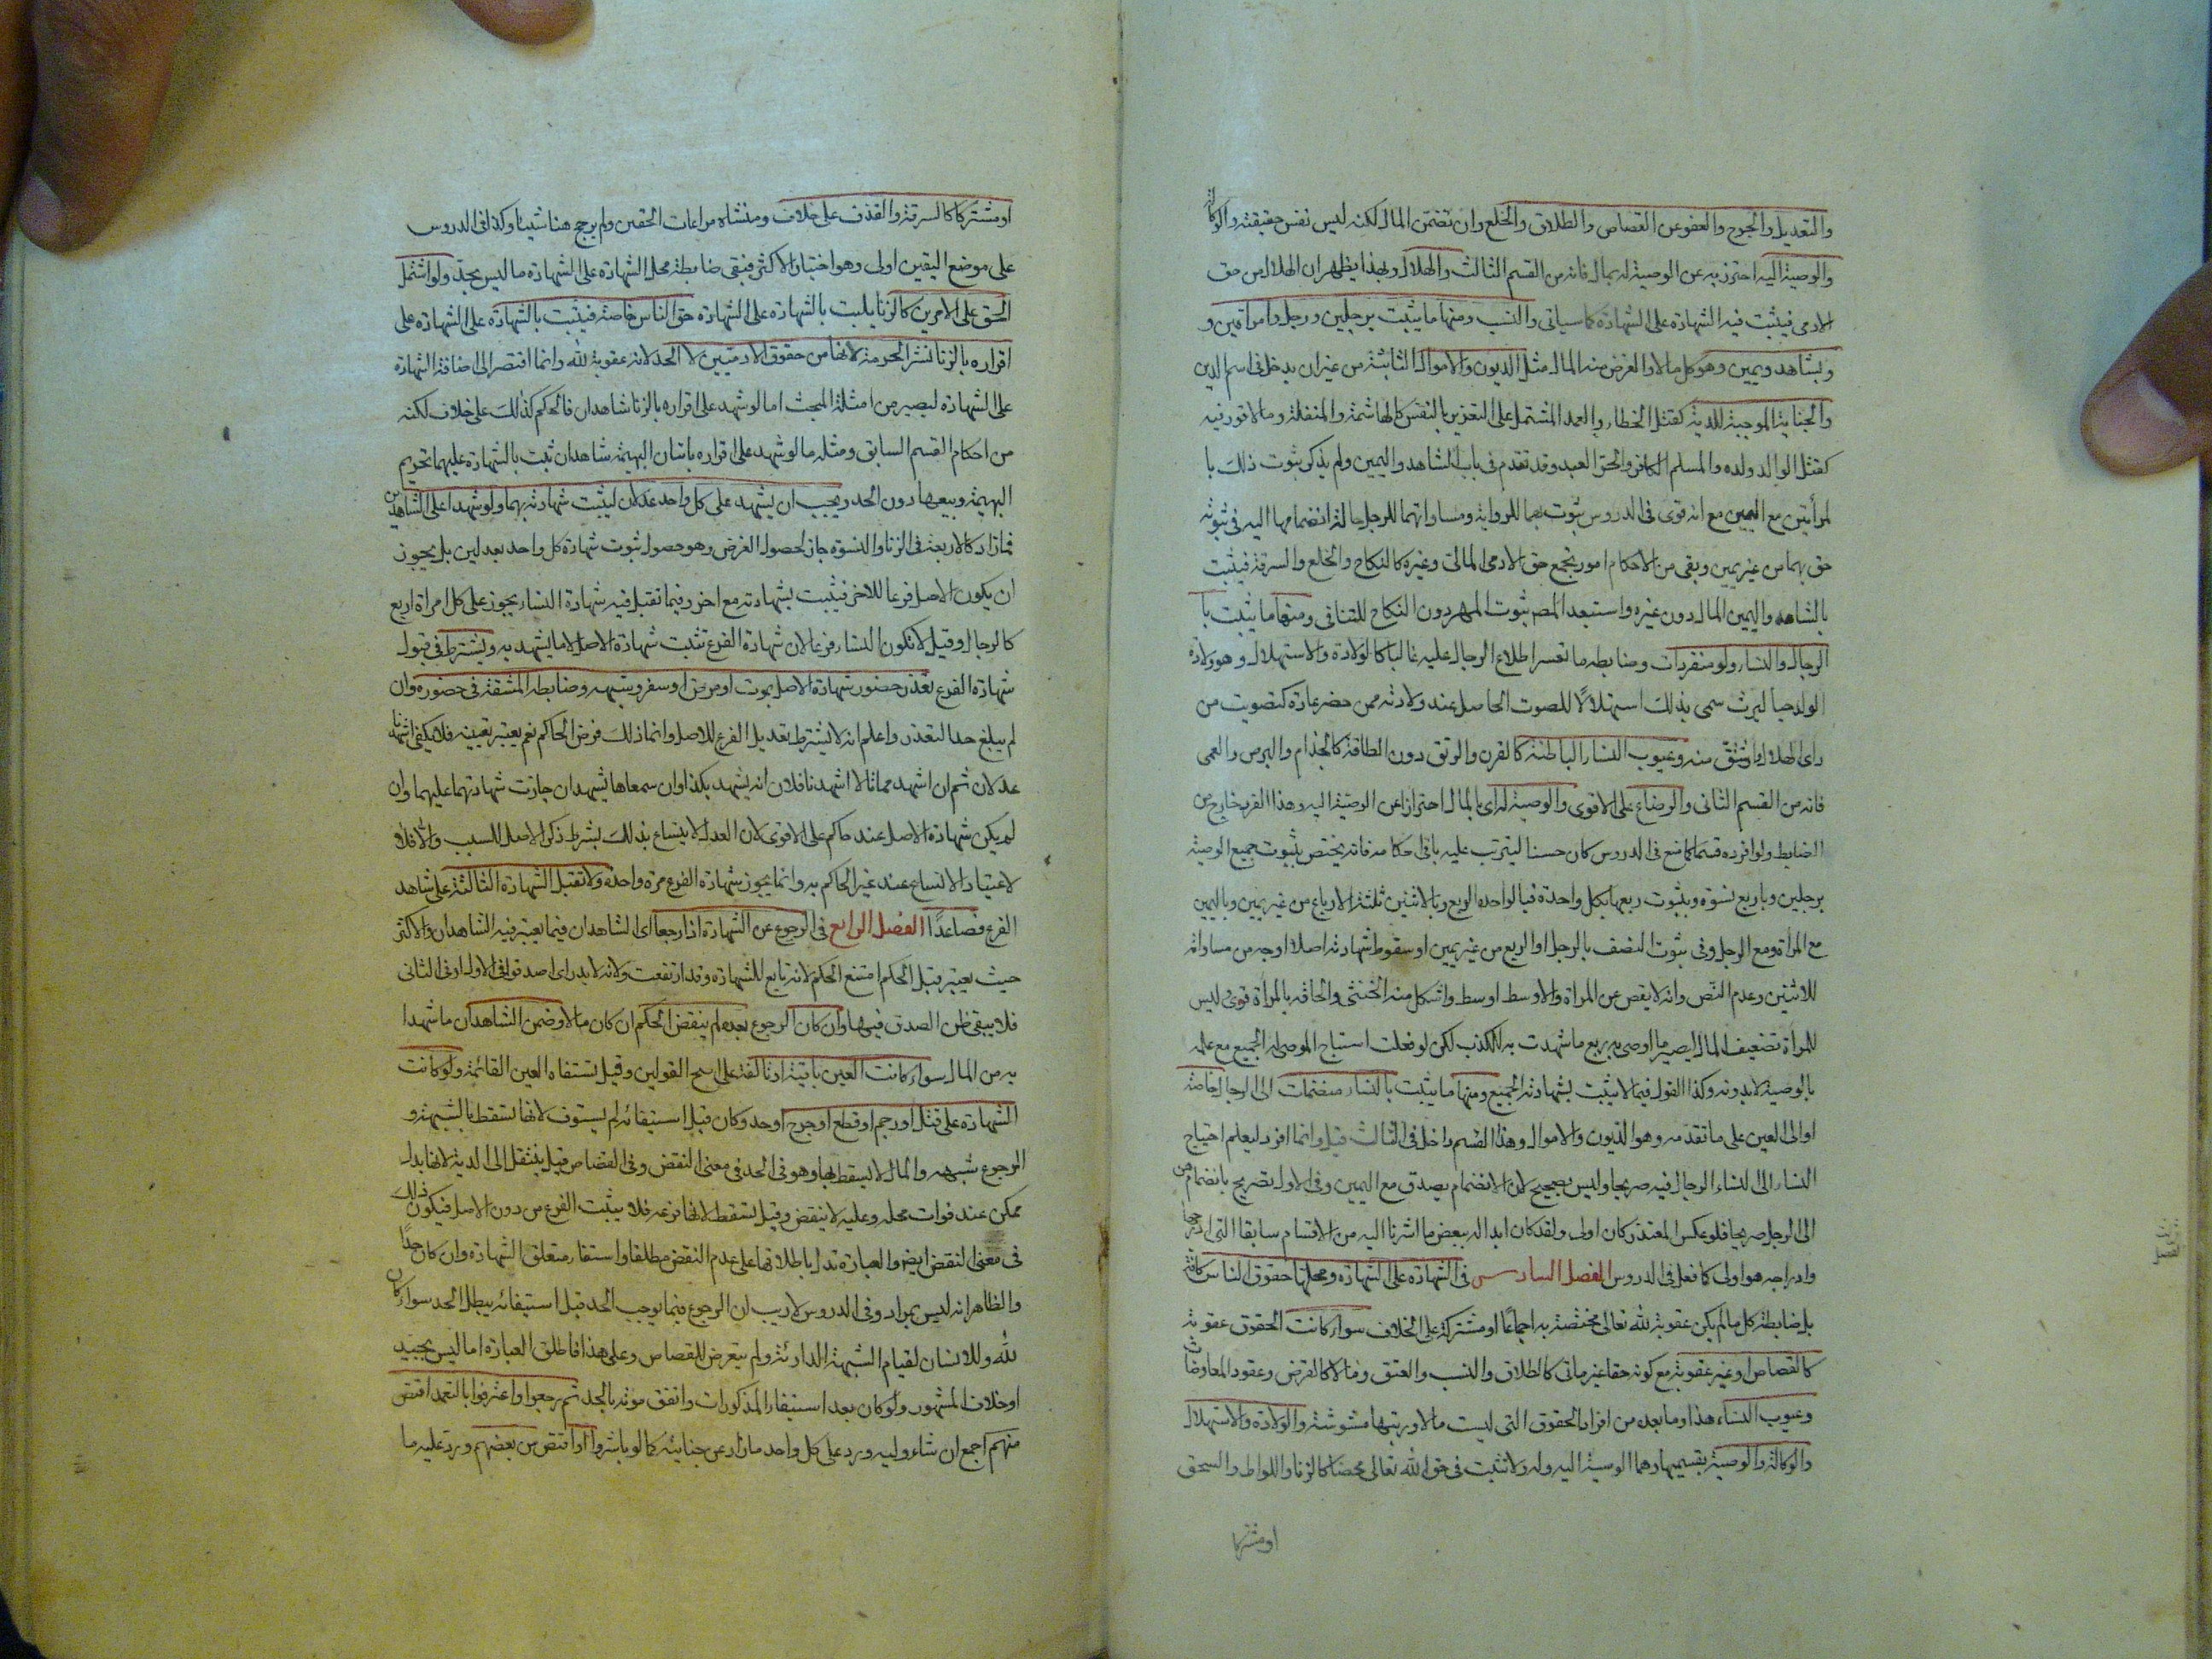 والتعديل والجرح والعفو عن القصاص والطلاق والخلع وان تضمن المال لكنه ليس نفس حقيقته والوكالة
والوصية اليه احترز به عن الوصية له بمال فانه من القسم الثالث والهلال وبهذا يظهر ان الهلال من حق
الادمي فيثبت فيه الشهادة على الشهادة كما سياتى والنسب ومنها ما يثبت برجلين ورجل وامراتين و
وبشاهد ويمين وهو كل مالا والغرض منه المال مثل الديون والاموال الثابتة من غير ان يدخل في اسم الدين
والجناية الموجبة للدية كقتل الخطاء والعمد المشتمل على التغرير بالنفس كالهاشمة والمنقلة ومالا قود فيه
كقتل الوالد ولده والمسلم الكافر والحر العبد وقد تقدم في باب الشاهد واليمين ولم يذكر ثبوت ذلك با
لمرأتين مع اليمين مع انه قوى في الدروس ثبوت بهما للرواية ومساواتهما للرجل حالة انضمامها اليه في ثبوته
حق بهما من غير يمين وبقى من الاحكام امور تجمع حق الادمي المالي وغيره كالنكاح والخلع والسرقة فيثبت
بالشاهد واليمين المال دون غيره واستبعد المص ثبوت المهر دون النكاح للتنافى ومنها ما يثبت با
الرجال والنساء ولو منفردات وضابطه ما تعسر اطلاع الرجال عليه غالبا كالولادة والاستهلال وهو ولادة
الولد حيا ليرث سمى بذلك استهلالًا للصوت الحاصل عند ولادته ممن حضر عادة كتصويت من
راى الهلال فاشتق منه وعيوب النساء الباطنة كالقرن والرتق دون الظاهرة كالجذام والبرص والعمى
فانه من القسم الثانى والرضاع على الاقوى والوصية له اى بالمال احترازا عن الوصية اليه وهذا الفرد خارج من
الضابط ولو افرده قسما كما صنع في الدروس كان حسنا ليترتب عليه باقى احكامه فانه يختص بثبوت جميع الوصية
برجلين وباربع نسوة وبثبوت ربعها بكل واحدة فبالواحدة الربع وبالاثنين ثلثة الارباع من غير يمين وباليمين
مع المرأة ومع الرجل وفى ثبوت النصف بالرجل او الربع من غير يمين او سقوط شهادته اصلا اوجه من مساواته
للاثنتين وعدم النص وانه لا يقص عن المراة والاوسط اوسط واشكل منه الخنثى والحاقه بالمرأة قوى وليس
للمرأة تضعيف المال ليصير ما اوصى به ربع ما شهدت به للكذب لكن لو فعلت استباح الموصى له الجميع مع علمه
بالوصية لا بدونه وكذا القول فيما لا يثبت بشهادته الجميع ومنها ما يثبت بالنساء منضمات الى الرجال خاصة
اوالى اليمين على ما تقدم وهو الديون والاموال وهذا القسم داخل في الثالث قيل وانما افرد ليعلم احتياج
النساء الى النساء الرجال فيه صريحا وليس بصحيح لان الانضمام يصدق مع اليمين وفى الاول تصريح بانضمامهن
الى الرجل صريحا فلو عكس المعتذر كان اولى ولقد كان ابداله ببعض ما اشرنا اليه من الاقسام سابقا التى ادرجها
وادراجه هو اولى كما فعل فى الدروس الفصل السادس في الشهادة على الشهادة ومحلها حقوق الناس كافة
بل ضابطه كل ما لم يكن عقوبة لله تعالى مختصة به اجماعًا او مشتركة على الخلاف سواء كانت الحقوق عقوبة
كالقصاص او غير عقوبة مع كونه حقا غير مالى كالطلاق والنسب والعتق ومالا كالقرض وعقود المعاوضات
وعيوب النساء هذا وما بعده من افراد الحقوق التى ليست مالا ورتبها مشوشة والولادة والاستهلال
والوكالة والوصية بقسميها وهما الوصية اليه وله ولا تثبت في حق الله تعالى محضا كالزنا واللواط والسحق
او مشتركا
او مشتركا كالسرقة والقذف على خلاف ومنشاه مراعات الحقين ولم يرجح هنا شيئا وكذا في الدروس
على موضع اليقين اولى وهو اختيار الاكثر فبقى ضابطة محل الشهادة على الشهادة ما ليس بحد ولو اشتمل
الحق على الامرين كالزنا يثبت بالشهادة على الشهادة حق الناس خاصة فيثبت بالشهادة على الشهادة على
اقراره بالزنا نشر الحرمة لانها من حقوق الادميين لا الحد لانه عقوبة لله وانما افتقر الى اضافة الشهادة
على الشهادة ليصير من امثلة المبحث اما لو شهد على اقراره بالزنا شاهدان فالحكم كذلك على خلاف لكنه
من احكام القسم السابق ومثله ما لو شهد على اقراره باتيان البهيمة شاهدان ثبت بالشهادة عليهما تحريم
البهيمة وبيعها دون الحد ويجب ان يشهد على كل واحد عدلان ليثبت شهادته بهما ولو شهدا على الشاهدين
فمازاد كالاربعة في الزنا والنسوة جاز لحصول الغرض وهو حصول ثبوت شهادة كل واحد بعدلين بل يجوز
ان يكون الاصل فرعا للاخر فيثبت بشهادته مع اخر وفيما تقبل فيه شهادة النساء يجوز على كل امراة اربع
كالرجال وقيل لا تكون النساء فرعا لان شهادة الفرع تثبت شهادة الاصل لا ما يشهد به ويشترط في قبول
شهادة الفرع تعذر حضور شهادة الاصل بموت او مرض او سفر وشبهه وضابطه المشقة في حضوره وان
لم يبلغ حد التعذر واعلم انه لا يشترط تعديل الفرع للاصل وانما ذلك فرض الحاكم نعم يعتبر تعيينه فلا يكفى اشهدنا
عدلان ثم ان اشهد هما قالا اشهدنا فلان انه يشهد بكذا وان سمعاها يشهدان جازت شهادتهما عليهما وان
لم يكن شهادة الاصل عند حاكم على الاقوى لان العدل لا يتسامح بذلك بشرط ذكر الاصل للسبب والا فلا
لاعتياد التسامح عند غير الحاكم به وانما يجوز شهادة الفرع مرة واحدة ولا تقبل الشهادة الثالثة على شاهد
الفرع فصاعدًا الفصل الرابع في الرجوع عن الشهادة اذا رجعا اى الشاهدان فيما يعتبر فيه الشاهدان والاكثر
حيث يعتبر قبل الحكم امتنع الحكم لانه تابع للشهادة وقد ارتفعت ولانه لا يدرى اصدقوا في الاول او في الثانى
فلا يبقى ظن الصدق فيها وان كان الرجوع بعده لم ينقض الحكم ان كان مالا وضمن الشاهدان ما شهدا
به من المال سواء كانت العين باقية او تالفة على اصح القولين وقيل تستعاد العين القائمة ولو كانت
الشهادة على قتل او رجم او قطع او جرح او حد وكان قبل استيفائه لم يستوف لانها تسقط بالشبهة و
الرجوع شبهه والمال لا يسقط بها وهو في الحد في معنى النقض وفى القصاص قيل ينتقل الى الدية لانها بدل
ممكن عند فوات محله وعليه لا ينقض وقيل تسقط لانها فرعه فلا يثبت الفرع من دون الاصل فيكون ذلك
في معنى النقض ايضا والعبارة تدل باطلاقها على عدم النقض مطلقا واستيفاء متعلق الشهادة وان كان حدًا
والظاهر انه ليس بمراد وفى الدروس لا ريب ان الرجوع فيما يوجب الحد قبل استيفائه يبطل الحد سواء كان
لله وللانسان لقيام الشبهة الدارئة ولم يتعرض للقصاص وعلى هذا فاطلاق العبارة اما ليس بجيد
او خلاف المشهور ولو كان بعد استيفاء المذكورات واتفق موته بالحد ثم رجعوا واعترفوا بالتعمد اقتص
منهم اجمع ان شاء وليه ورد على كل واحد ما زاد عن جنايته كما لو باشروا او اقتص من بعضهم ورد عليه ما